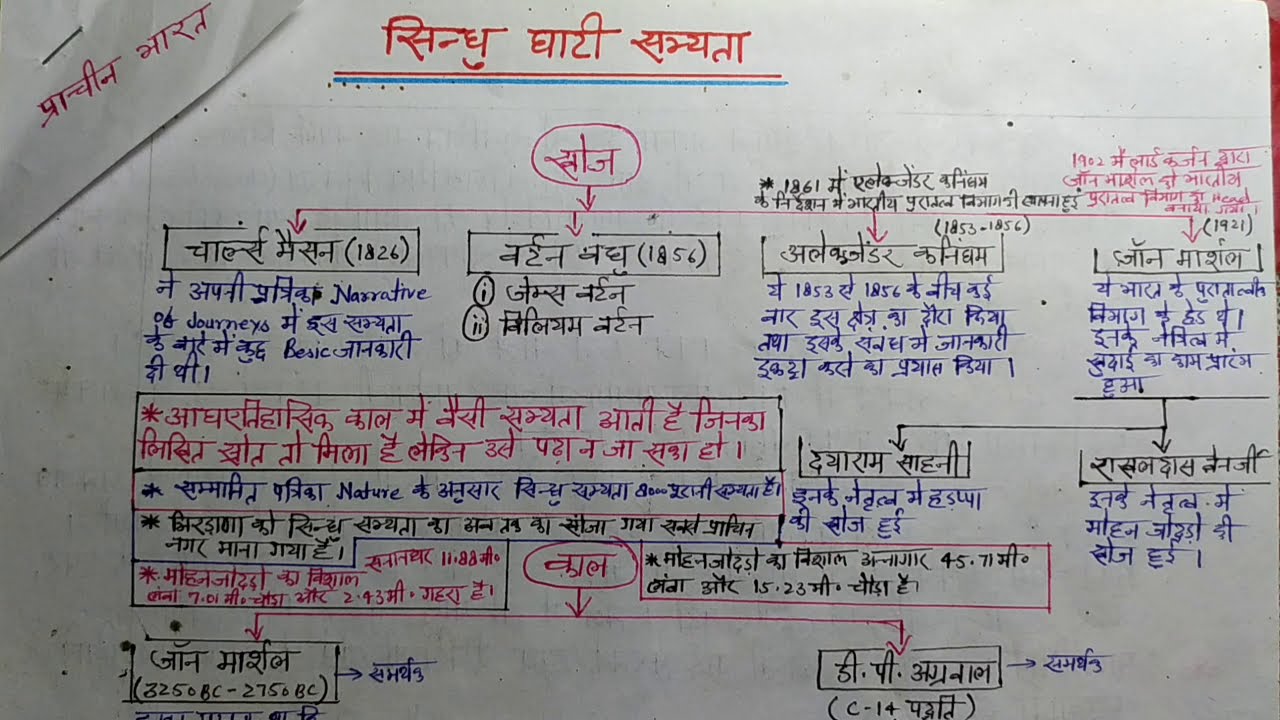 प्राचीन भारत
सिन्धु घाटी सभ्यता
खोज
* 1861 में एलेक्जेंडर कनिंघम
के निर्देशन में भारतीय पुरातत्व विभाग की स्थापना हुई
1902 में लार्ड कर्जन द्वारा
जॉन मार्शल को भारतीय
पुरातत्व विभाग का Head
बनाया गया।
चार्ल्स मैसन (1826)
ने अपनी पत्रिका Narrative
of Journeys में इस सभ्यता
के बारे में कुछ Besic जानकारी
दी थी।
बर्टन बंधु (1856)
(i) जेम्स बर्टन
(ii) विलियम बर्टन
(1853-1856)
अलेक्जेंडर कनिंघम
ये 1853 से 1856 के बीच कई
बार इस क्षेत्र का दौरा किया
तथा इसके संबंध में जानकारी
इकट्ठा करने का प्रयास किया।
(1921)
जॉन मार्शल
ये भारत के पुरातात्वीक
विभाग के हेड थे।
इनके नेत्रित्व में
खुदाई का काम प्रारंभ
हुआ
* आघऐतिहासिक काल में वैसी सभ्यता आती है जिनका
लिखित स्रोत तो मिला है लेकिन उसे पढ़ा न जा सका हो।
* सम्मानित पत्रिका Nature के अनुसार सिन्धु सभ्यता 8000 पुरानी सभ्यता है।
* भिरड़ाणा को सिन्धु सभ्यता का अब तक का खोजा गया सबसे प्राचिन
नगर माना गया है।
* मोहनजोदड़ो का विशाल स्नानघर 11.88 मी०
लंबा 7.01 मी० चौड़ा और 2.43 मी० गहरा है।
दयाराम साहनी
इनके नेतृत्व में हड़प्पा
की खोज हुई
राखलदास बेनर्जी
इनके नेतृत्व में
मोहन जोदड़ो की
खोज हुई।
काल
* मोहनजोदड़ो का विशाल अन्नागार 45.71 मी०
लंबा और 15.23 मी० चौड़ा है।
जॉन मार्शल
(3250 BC - 2750 BC)
समर्थक
डी. पी. अग्रवाल
(C-14 पद्धति)
समर्थक